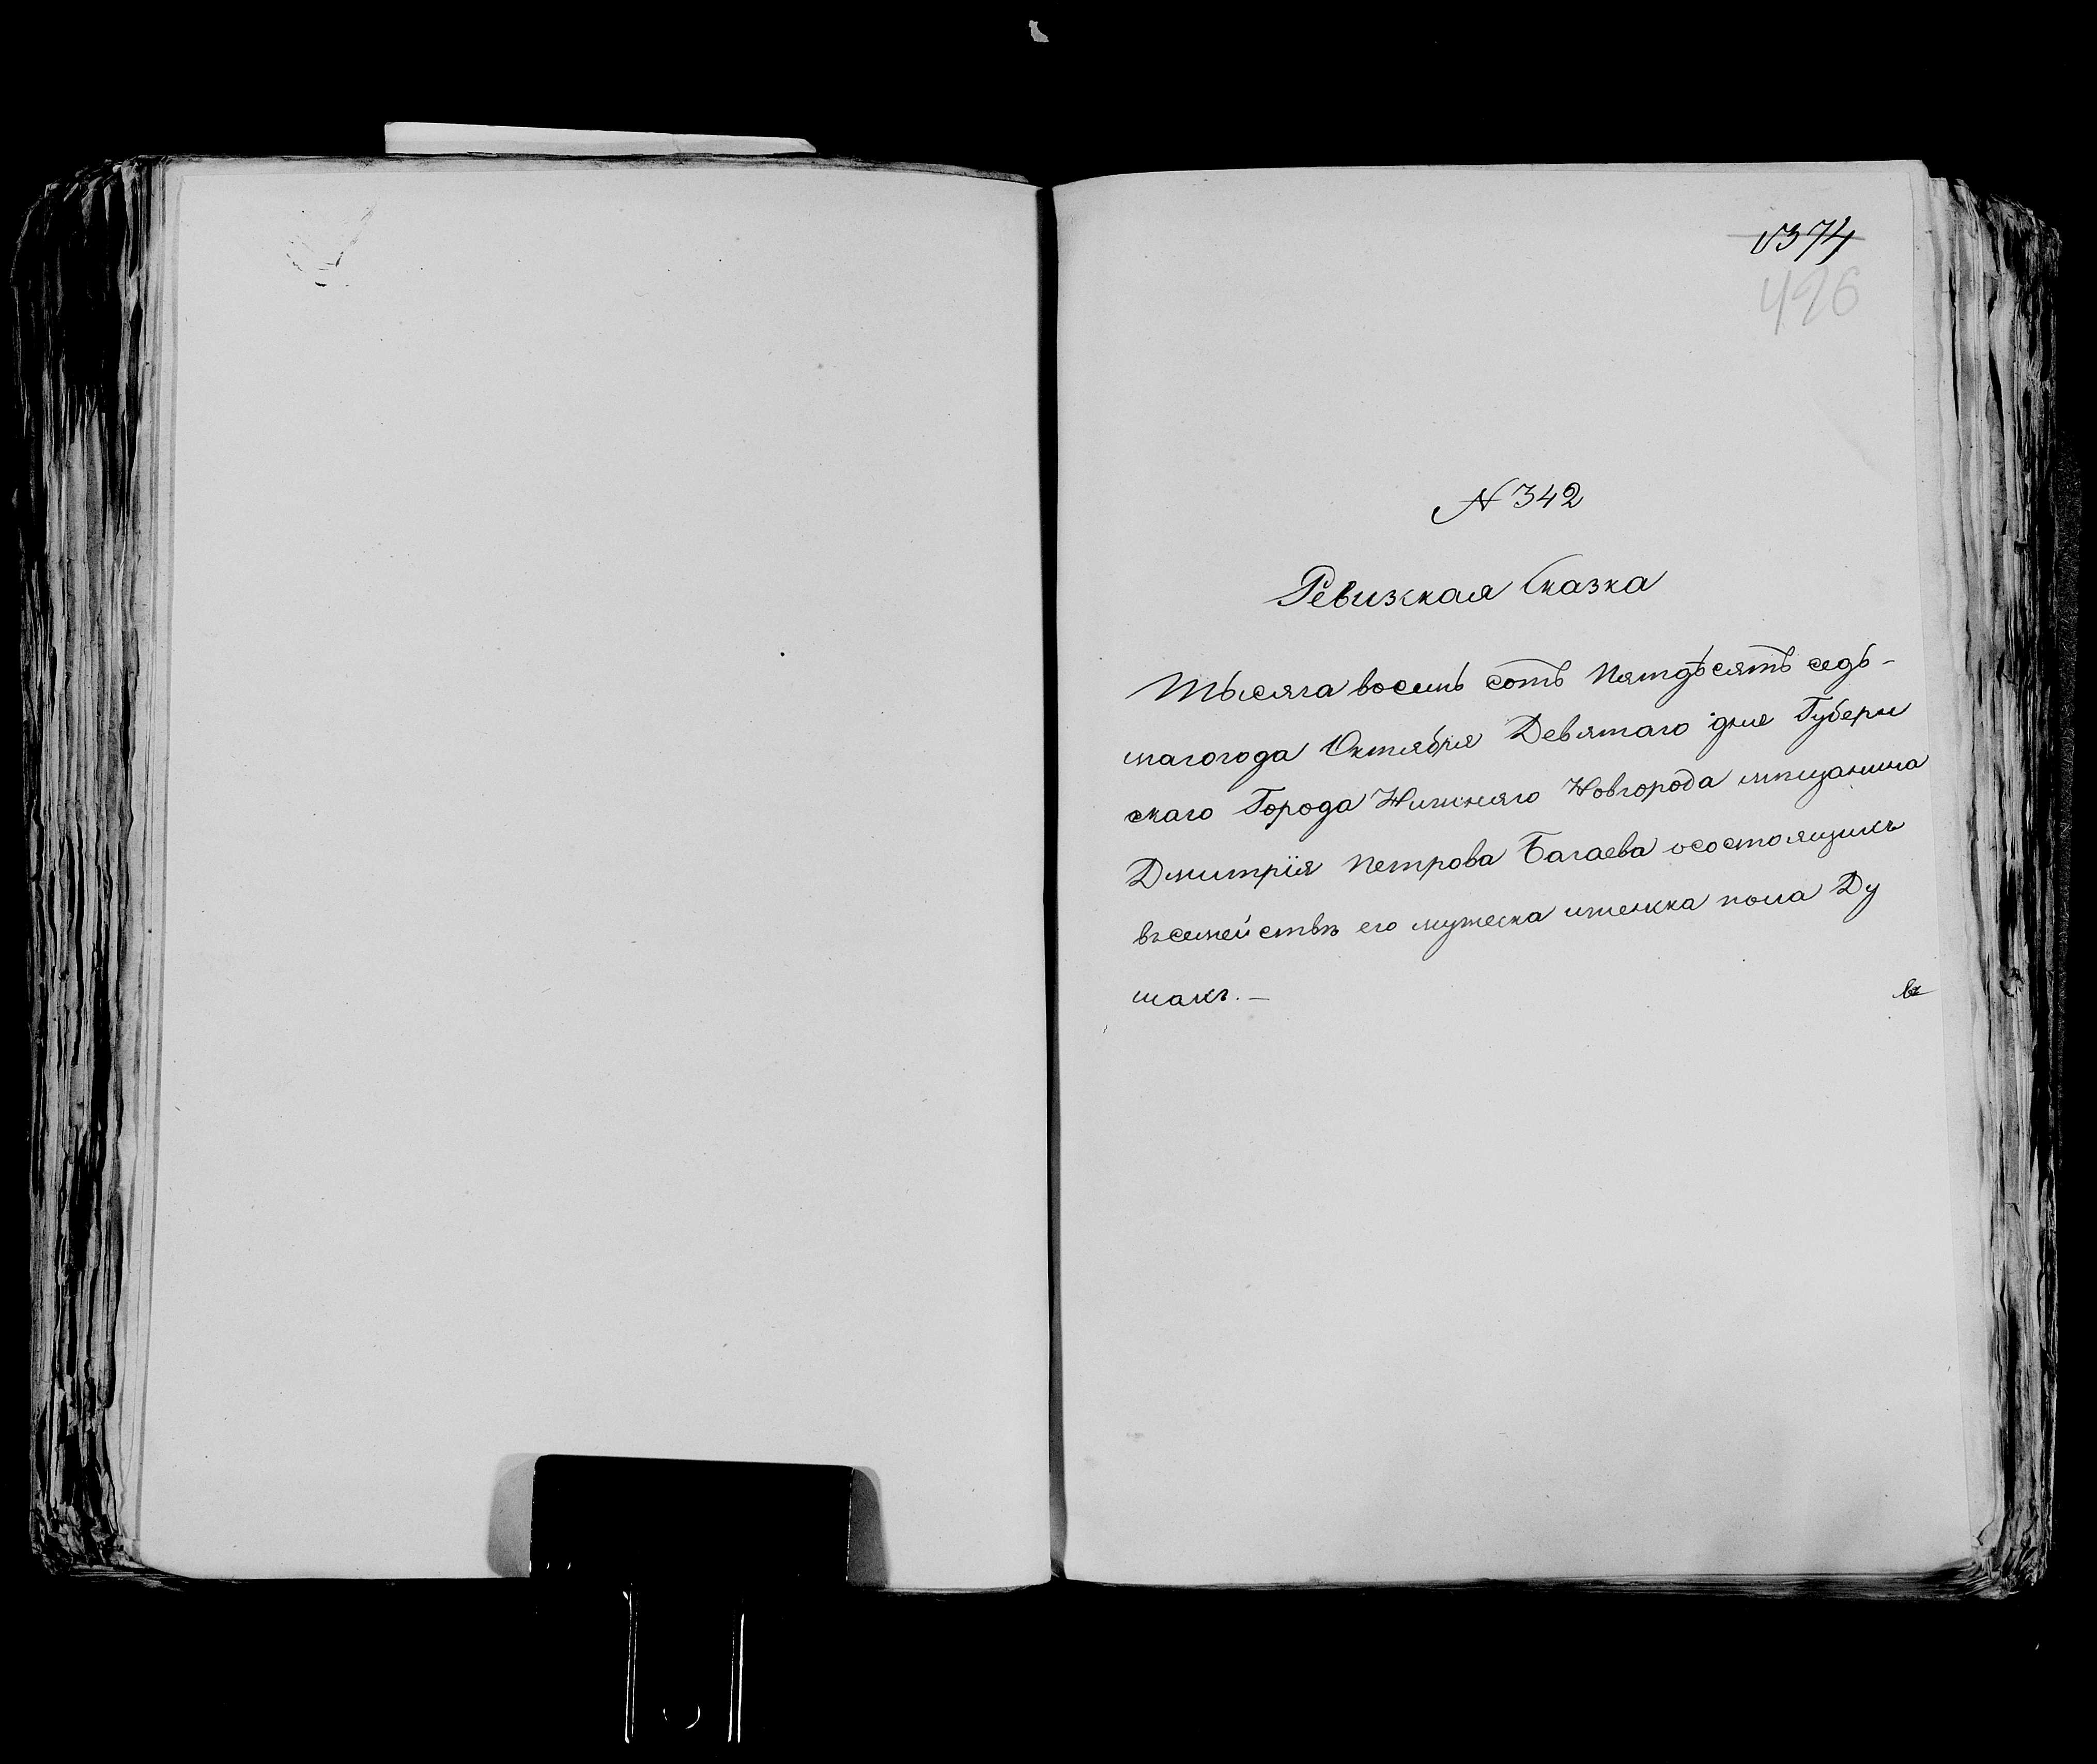 1374
426
N 342
Ревизкая Сказка
Тысяча восемь сотъ Пятдесятъ седь-
магогода Октября Девятаго дня Губерн
скаго Города Нижняго Новгорода мѣщанина
Дмитрія Петрова Багаева осостоящихъ
въсемействѣ его мужеска иженска пола Ду
шахъ. —
въ